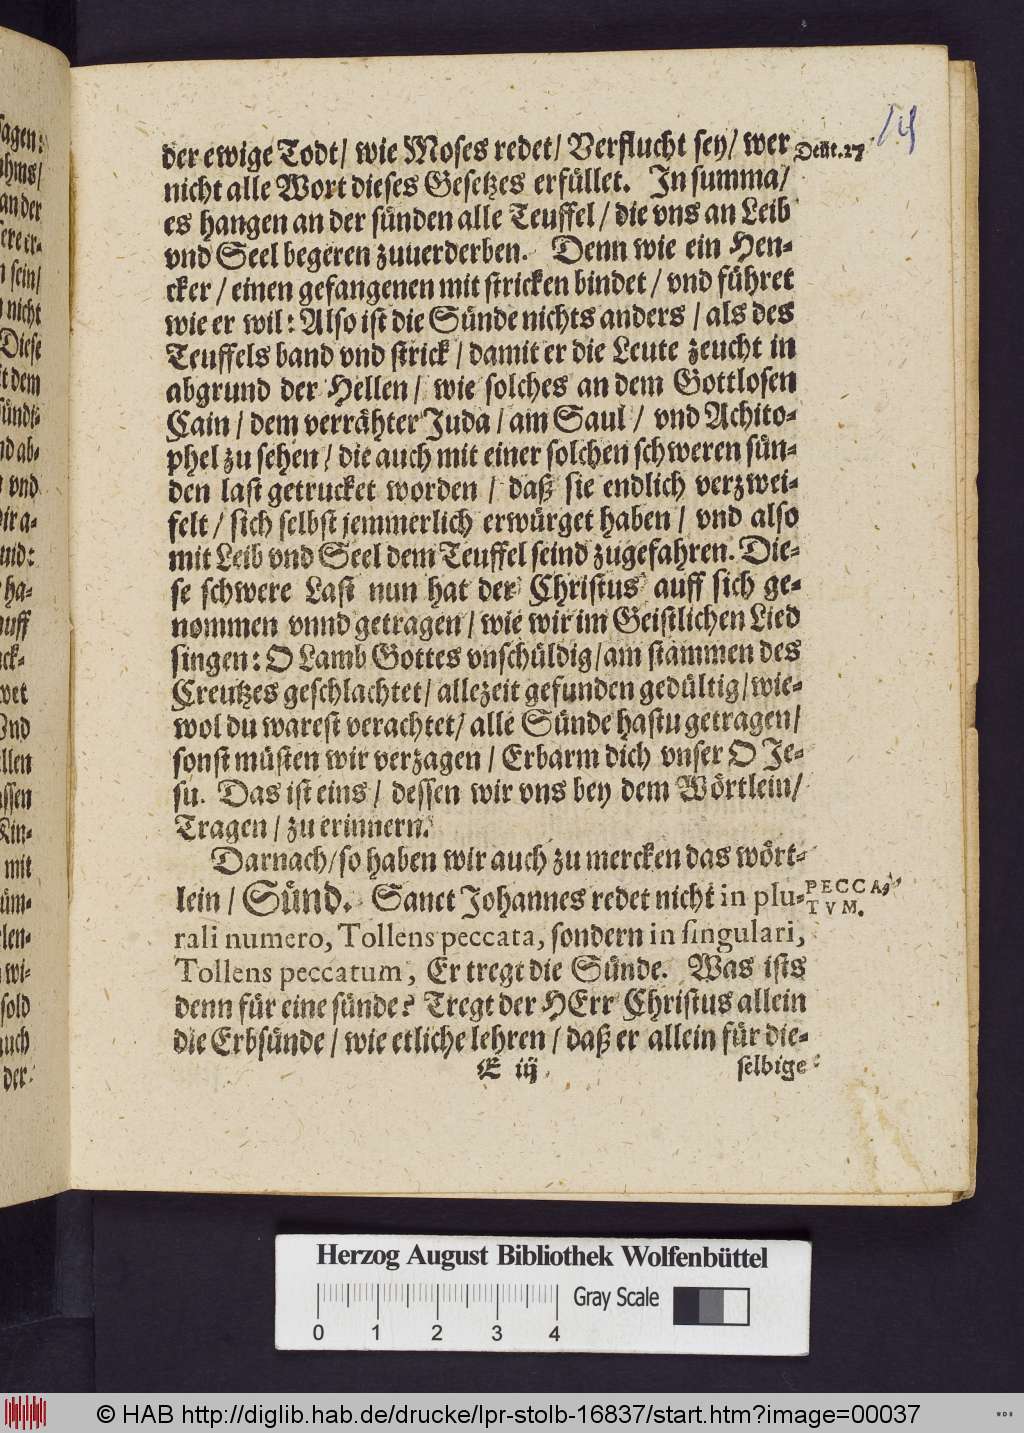 14
der ewige Todt/ wie Moses redet/ Verflucht sey/ wer
Deut. 27
nicht alle Wort dieses Gesetzes erfüllet. In summa/
es hangen an der sünden alle Teuffel / die vns an Leib
vnd Seel begeren zuuerderben. Denn wie ein Hen-
cker / einen gefangenen mit stricken bindet / vnd führet
wie er wil: Also ist die Sünde nichts anders / als des
Teuffels band vnd strick / damit er die Leute zeucht in
abgrund der Hellen / wie solches an dem Gottlosen
Cain / dem verrähter Juda / am Saul / vnd Achito-
phel zu sehen / die auch mit einer solchen schweren sün-
den last getrucket worden / daß sie endlich verzwei-
felt / sich selbst jemmerlich erwürget haben / vnd also
mit Leib vnd Seel dem Teuffel seind zugefahren. Die-
se schwere Last nun hat der Christus auff sich ge-
nommen vnnd getragen / wie wir im Geistlichen Lied
singen: O Lamb Gottes vnschüldig / am stammen des
Creutzes geschlachtet / allezeit gefunden gedültig / wie-
wol du warest verachtet / alle Sünde hastu getragen /
sonst müsten wir verzagen / Erbarm dich vnser O Je-
su. Das ist eins / dessen wir vns bey dem Wörtlein /
Tragen / zu erinnern.
Darnach / so haben wir auch zu mercken das wört-
lein / Sünd. Sanct Johannes redet nicht in plu-
PECCA-
TVM.
rali numero, Tollens peccata, sondern in singulari,
Tollens peccatum, Er tregt die Sünde. Was ists
denn für eine sünde? Tregt der HErr Christus allein
die Erbsünde / wie etliche lehren / daß er allein für die-
E iij
selbige
Herzog August Bibliothek Wolfenbüttel
Gray Scale
0 1 2 3 4
© HAB http://diglib.hab.de/drucke/lpr-stolb-16837/start.htm?image=00037